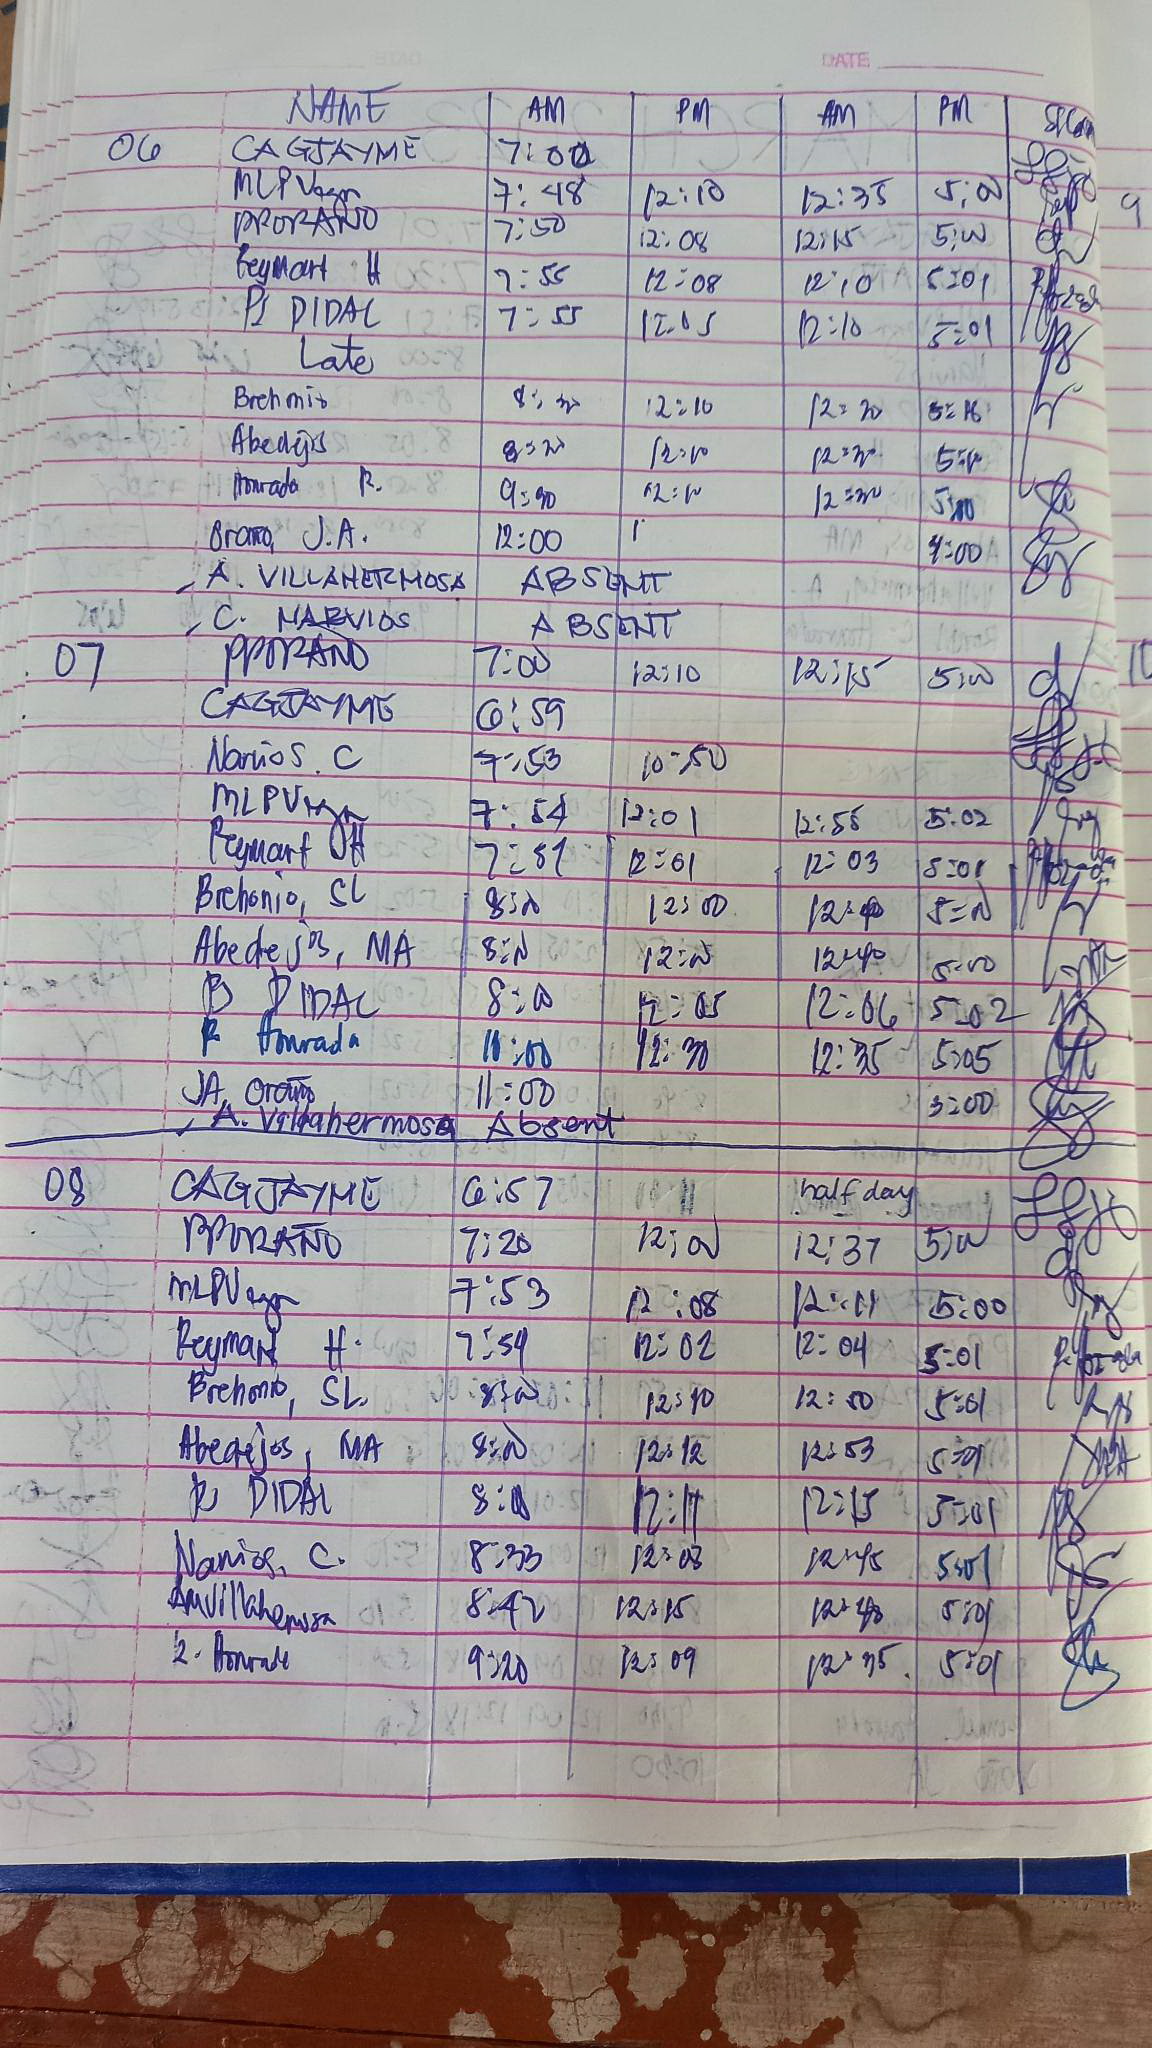 DATE
NAME AM PM AM PM
06 CAGJAYME 7:00
MLPV 7:48 12:10 12:35 5:00
PPORAÑO 7:50 12:08 12:15 5:00
Reymart H 7:55 12:08 12:10 5:01
PJ DIDAL 7:55 12:05 12:10 5:01
Late
Brehonio 12:10
Abedejos
Honrada R. 9:30
Oraño, J.A. 12:00
A. VILLAHERMOSA ABSENT
C. NARVIOS ABSENT
07 PPORAÑO 7:00 12:10 12:15 5:00
CAGJAYME 6:59
Narvios. C 7:53 10:50
MLPV 7:54 12:01 12:55 5:02
Reymart H 7:57 12:01 12:03 5:01
Brehonio, SL 8:00 12:00 12:40 5:00
Abedejos, MA 8:00 12:00 12:40 5:00
DIDAL 8:00 12:05 12:06 5:02
R Honrada 11:00 12:30 12:35 5:05
JA. Oraño 11:00 3:00
A. Villahermosa Absent
08 CAGJAYME 6:57 half day
PPORAÑO 7:20 12:00 12:37 5:00
MLPV 7:53 12:08 12:11 5:00
Reymart H. 7:59 12:02 12:04 5:01
Brehonio, SL. 8:00 12:10 12:50 5:01
Abedejos, MA 8:00 12:12 12:53 5:01
DIDAL 8:00 12:11 12:15 5:01
Narvios, C. 8:33 12:03 12:45 5:01
AMVillahermosa 8:42 12:15 12:40 5:01
R. Honrada 9:20 12:09 12:35 5:01